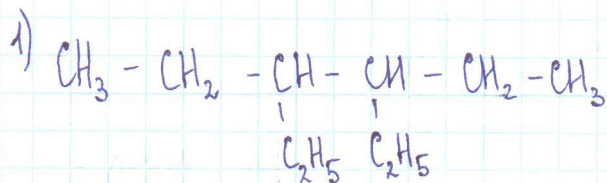 1)
CH₃ - CH₂ - CH - CH - CH₂ - CH₃
C₂H₅ C₂H₅